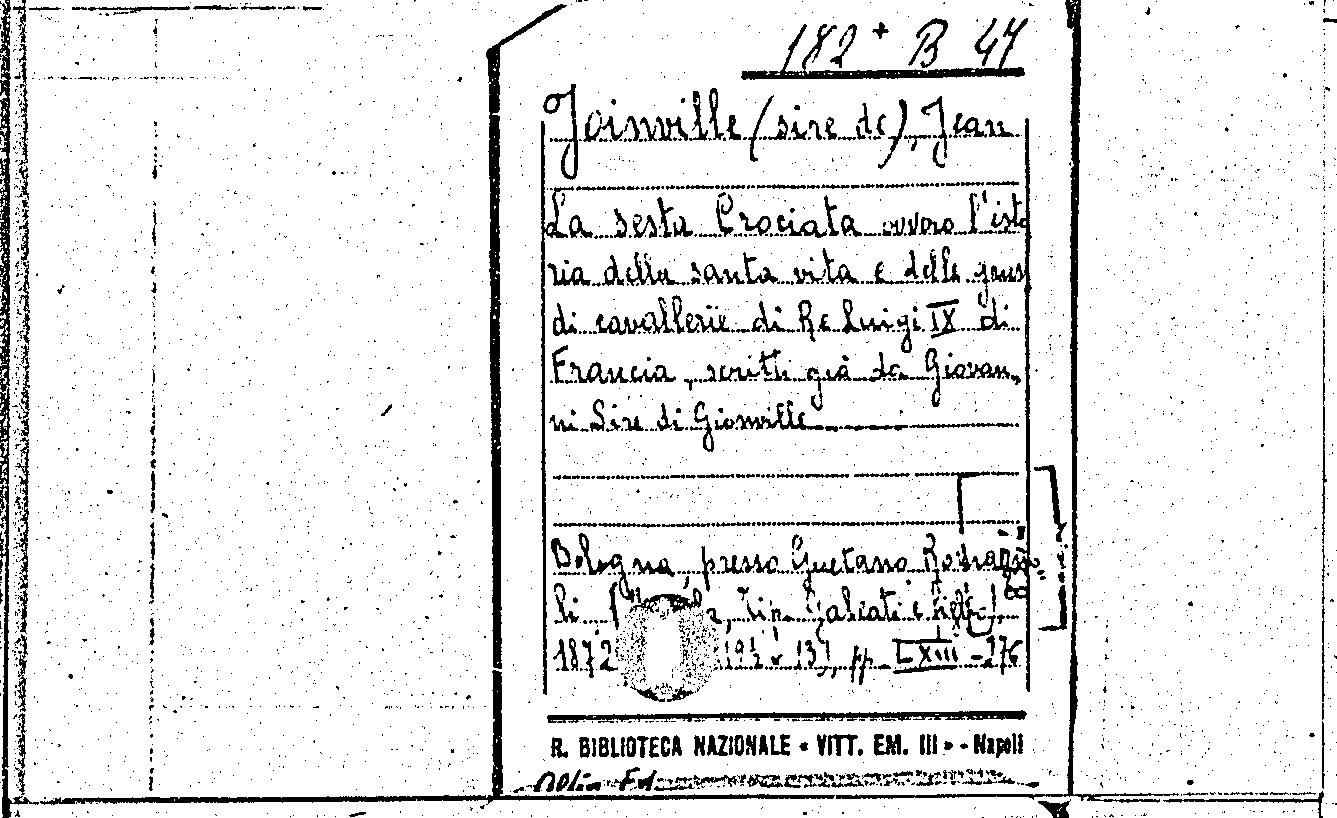 182 + B 47
Joinville (sire de), Jean
La sesta Crociata ovvero l'isto
ria della santa vita e delle
di cavallerie di Re Luigi IX di
Francia, scritti già da Giovan,
ni Sire di Gionville
Bologna, presso Gaetano Romagno
li Tip. Galeati e
1872 pp. LXIII - 276
R. BIBLIOTECA NAZIONALE « VITT. EM. III » - Napoli